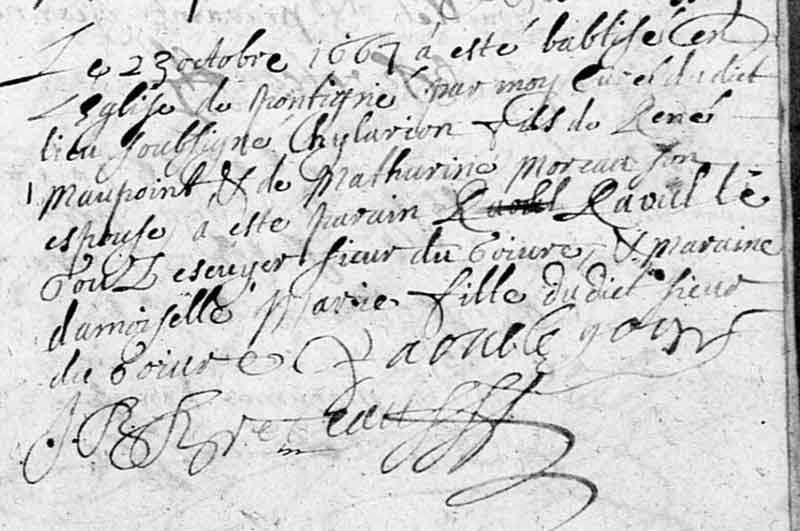 Le 23 octobre 1667 a esté babtisé en
L'Eglise de pontigné par moy Curé dudict
lieu soubsigné hylarion fils de René
Maupoint & de Matharine moreau son
espouse a esté parain Raoul Raoul le
Gouz escuyer sieur du & maraine
damoiselle Marie fille dudict sieur
du Raoul le gouz